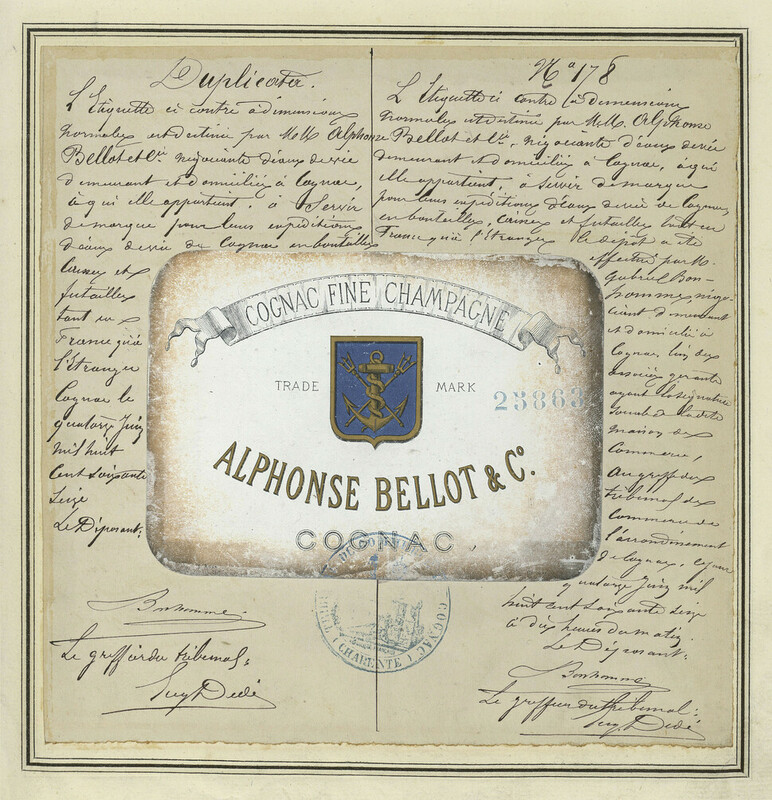 Duplicata.
L'Etiquette ci contre à dimensions
normales est détenue par M.M. Alphonse
Bellot et Cie négociants d'eaux de vie
demeurant et domiciliés à Cognac,
à qui elle appartient, à Servir
de marque pour leurs expéditions
d'eaux de vie de Cognac en bouteilles
caisses et
futailles
tant en
France qu'à
l'étranger
Cognac le
quatorze Juin
mil huit
cent soixante
seize
Le Déposant:
Bonhomme
Le greffier du tribunal:
Guy Dedé
No 178
L'Etiquette ci contre (à dimensions
normales est détenue par M.M. Alphonse
Bellot et Cie, négociants d'eaux de vie
demeurant et domiciliés à Cognac, à qui
elle appartient, à Servir de marque
pour leurs expéditions d'eaux de vie de Cognac,
en bouteilles, caisses et futailles tant en
France qu'à l'étranger. Le dépôt a été
effectué par M.
Gabriel Bon-
homme négo-
ciant demeurant
et domicilié à
Cognac, l'un des
associés gérants
ayant la signature
sociale de la dite
maison de
Commerce,
au greffe du
tribunal de
commerce de
l'arrondissement
de Cognac, ce jour
quatorze Juin mil
huit cent soixante seize
à dix heures du matin.
Le Déposant:
Bonhomme
Le greffier du tribunal:
Guy Dedé
COGNAC FINE CHAMPAGNE
TRADE MARK
25863
ALPHONSE BELLOT & Co.
COGNAC,
COGNAC
CHARENTE